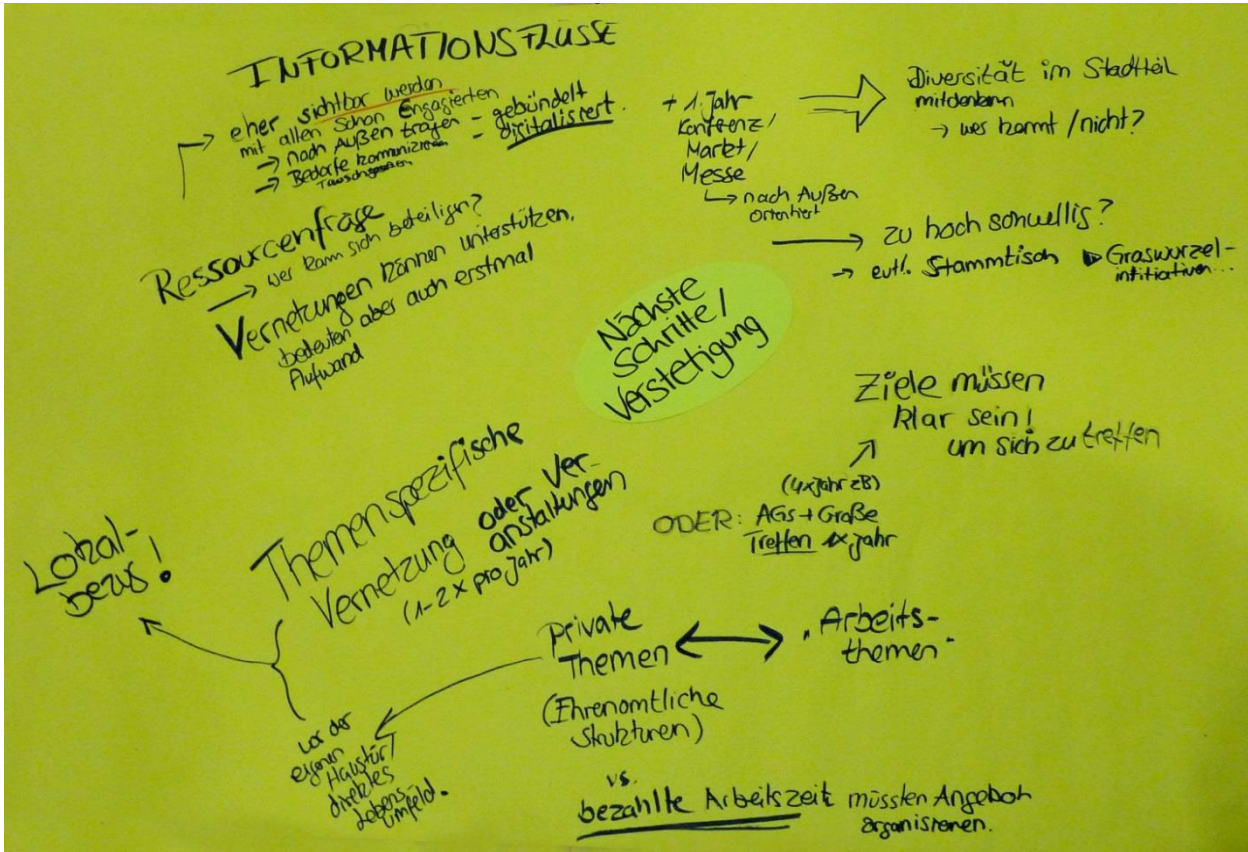 INFORMATIONSFLÜSSE
→ eher sichtbar werden
mit allen schon Engagierten
→ nach Außen tragen = gebündelt
→ Bedarfe kommunizieren = digitalisiert.
Ressourcenfrage
→ wer kann sich beteiligen?
Vernetzungen können unterstützen,
bedeuten aber auch erstmal
Aufwand
+ 1. Jahr
Konferenz/
Markt/
Messe
nach Außen
orientiert
Diversität im Stadtteil
mitdenken
→ wer kommt / nicht?
→ zu hoch schwellig?
→ evtl. Stammtisch ▶ Graswurzel-
intitiativen...
Nächste
Schritte/
Verstetigung
Ziele müssen
klar sein!
um sich zu treffen
(4xJahr zB)
ODER: AGs + Große
Treffen 1x Jahr
Themenspezifische
Vernetzung oder Ver-
anstaltungen
(1-2 x pro Jahr)
Lokal-
bezug!
Private
Themen ↔ "Arbeits-
themen"
(Ehrenamtliche
Strukturen)
vor der
eigenen
Haustür/
direktes
Lebens-
umfeld.
vs.
bezahlte Arbeitszeit müssten Angebote
organisieren.